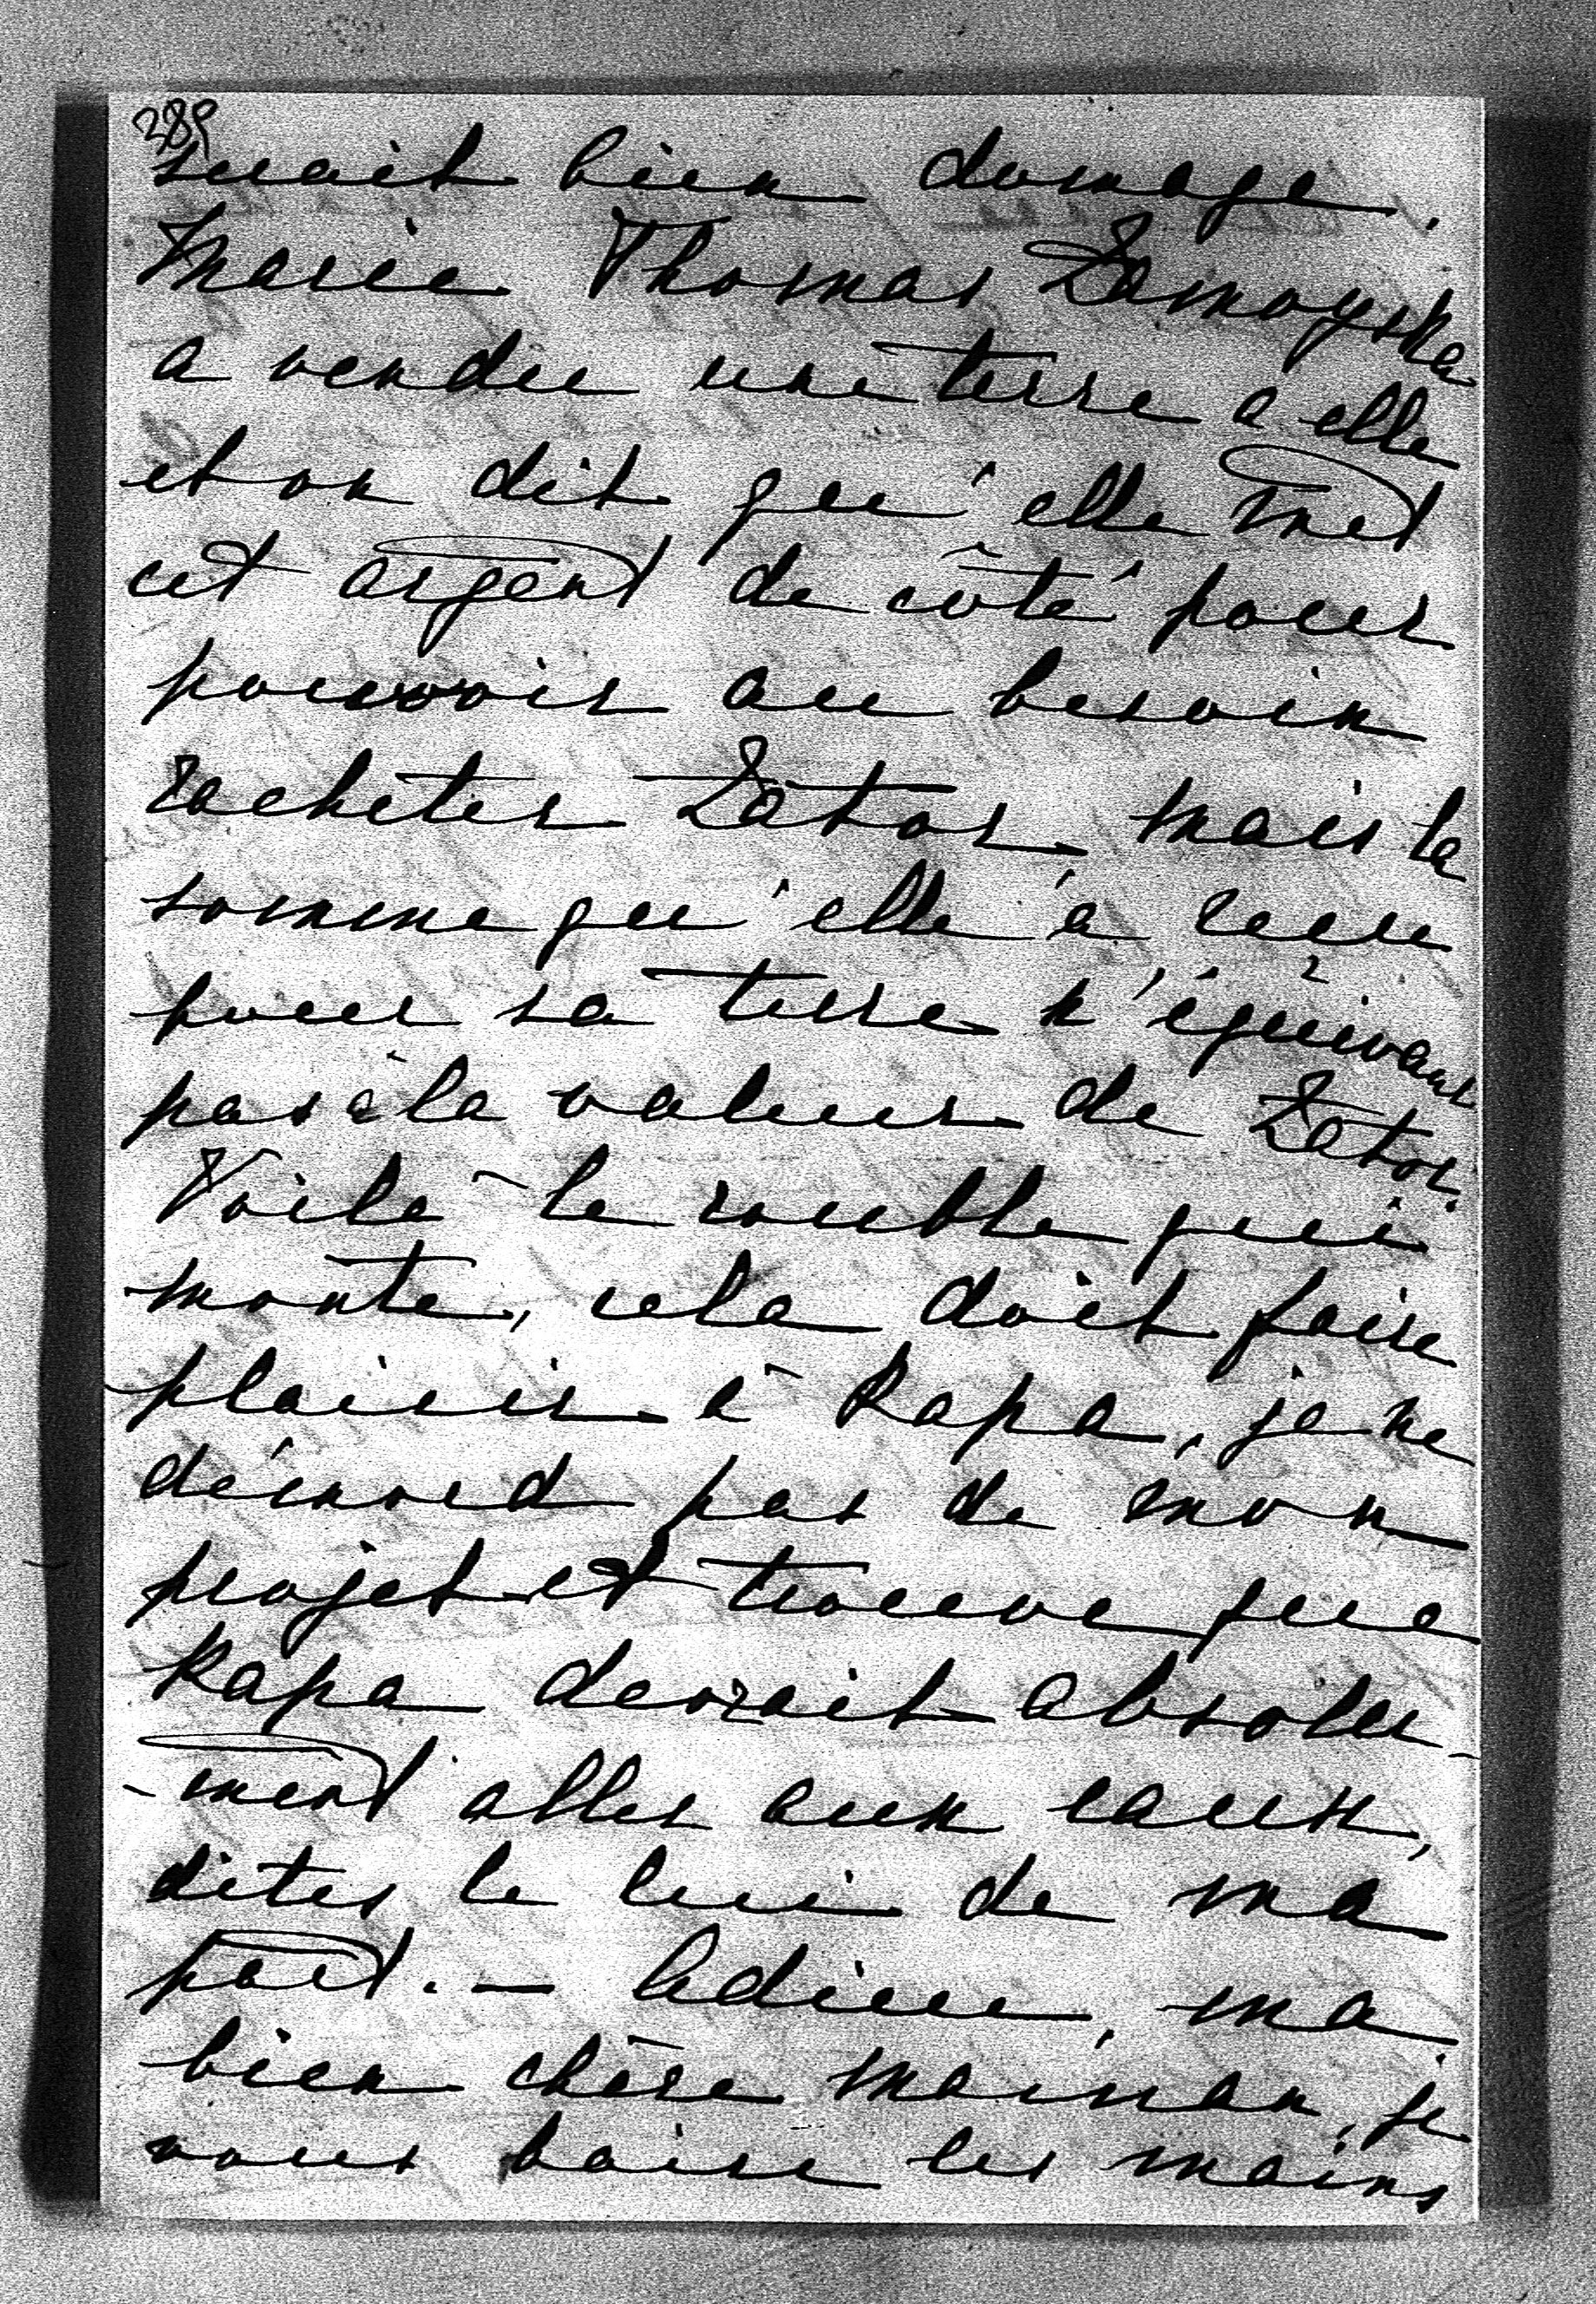 289
serait bien domage.
Marie Thomas Zamoyska
a vendu une terre a elle
et on dit qu'elle met
cet argent de côté pour
pouvoir au besoin
racheter Zator, mais la
somme qu'elle a reçue
pour sa terre n'équivaut
pas à la valeur de Zator.
Voilà le rouble qui
monte, cela doit faire
plaisir à Papa, je ne
démord pas de mon
projet et trouve que
Papa devrait absolu-
-ment aller aux eaux,
dites le lui de ma
part. — Adieu, ma
bien chère maman, je
vous baise les mains